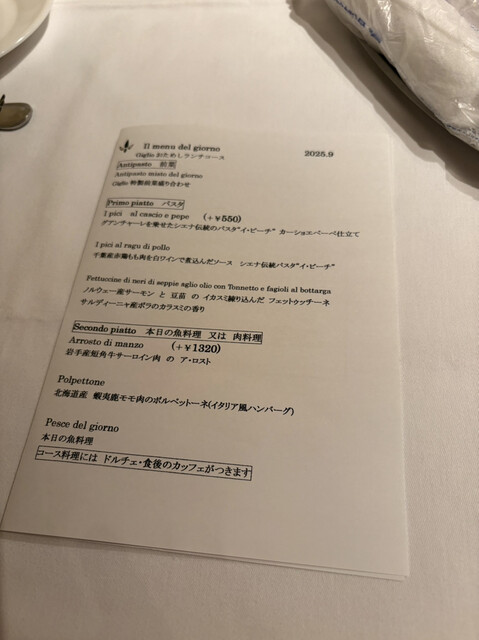 Il menu del giorno
2025.9
Giglio おためしランチコース
Antipasto 前菜
Antipasto misto del giorno
Giglio 特製前菜盛り合わせ
Primo piatto パスタ
I pici al cascio e pepe (+¥550)
グアンチャーレを乗せたシエナ伝統のパスタ"イ・ピーチ" カーショエペーペ仕立て
I pici al ragu di pollo
千葉産赤鶏もも肉を白ワインで煮込んだソース シエナ伝統パスタ"イ・ピーチ"
Fettuccine di neri di seppie aglio olic con Tonnetto e fagioli al bottarga
ノルウェー産サーモン と 豆苗 の イカスミ練り込んだ フェットゥッチーネ
サルディーニャ産ボラのカラスミの香り
Secondo piatto 本日の魚料理 又は 肉料理
Arrosto di manzo (+¥1320)
岩手産短角牛サーロイン肉 の ア・ロスト
Polpettone
北海道産 蝦夷鹿モモ肉のポルペットーネ(イタリア風ハンバーグ)
Pesce del giorno
本日の魚料理
コース料理には ドルチェ・食後のカッフェがつきます